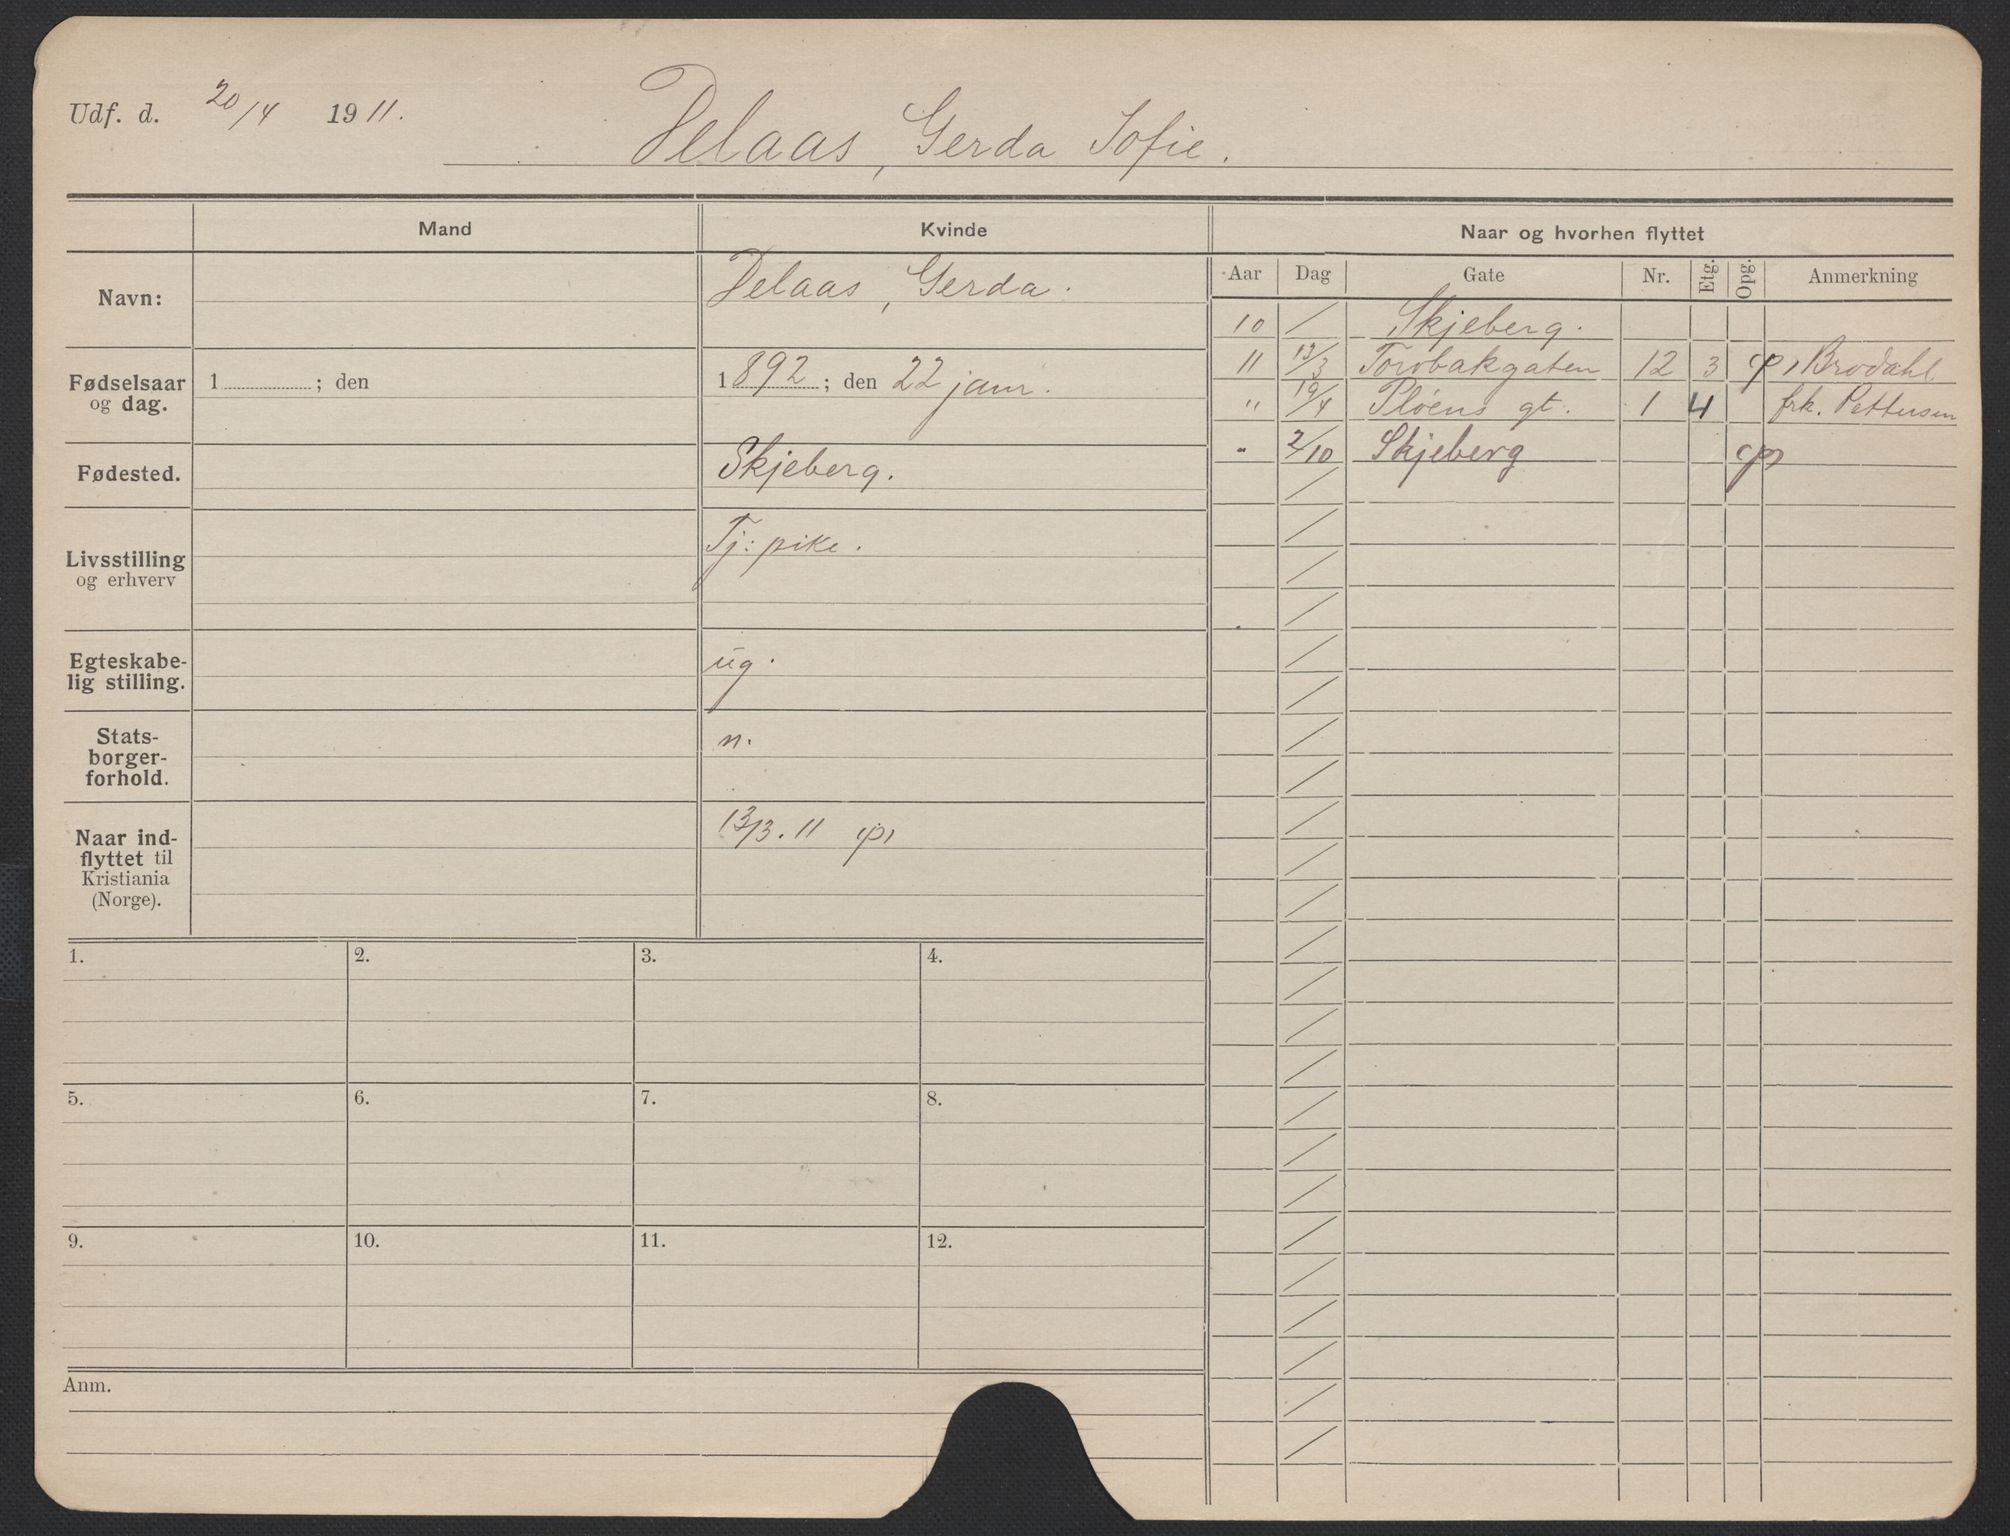 Udf. d. 20/4 1911.
Delaas, Gerda Sofie.
Mand
Kvinde
Naar og hvorhen flyttet
Navn:
Delaas, Gerda.
Fødselsaar og dag.
1 ; den
1892; den 22 janr.
Fødested.
Skjeberg.
Livsstilling og erhverv
Tj: pike.
Egteskabe-
lig stilling.
ug.
Stats-
borger-
forhold.
n.
Naar ind-
flyttet til
Kristiania
(Norge).
13/3. 11
Aar Dag Gate Nr. Etg. Opg. Anmerkning
10 / Skjeberg.
11 13/3 Torvbakgaten 12 3 Brodahl
" 19/4 Pløens gt. 1 4 frk. Pettersen
" 2/10 Skjeberg
1. 2. 3. 4.
5. 6. 7. 8.
9. 10. 11. 12.
Anm.